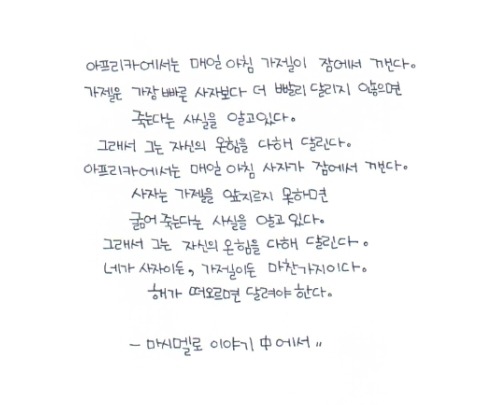 아프리카에서는 매일 아침 가젤이 잠에서 깬다。
가젤은 가장 빠른 사자보다 더 빨리 달리지 않으면
죽는다는 사실을 알고있다。
그래서 그는 자신의 온힘을 다해 달린다.
아프리카에서는 매일 아침 사자가 잠에서 깬다.
사자는 가젤을 앞지르지 못하면
굶어 죽는다는 사실을 알고 있다.
그래서 그는 자신의 온힘을 다해 달린다。
네가 사자이든, 가젤이든 마찬가지이다。
해가 떠오르면 달려야 한다。
- 마시멜로 이야기 中에서 〃